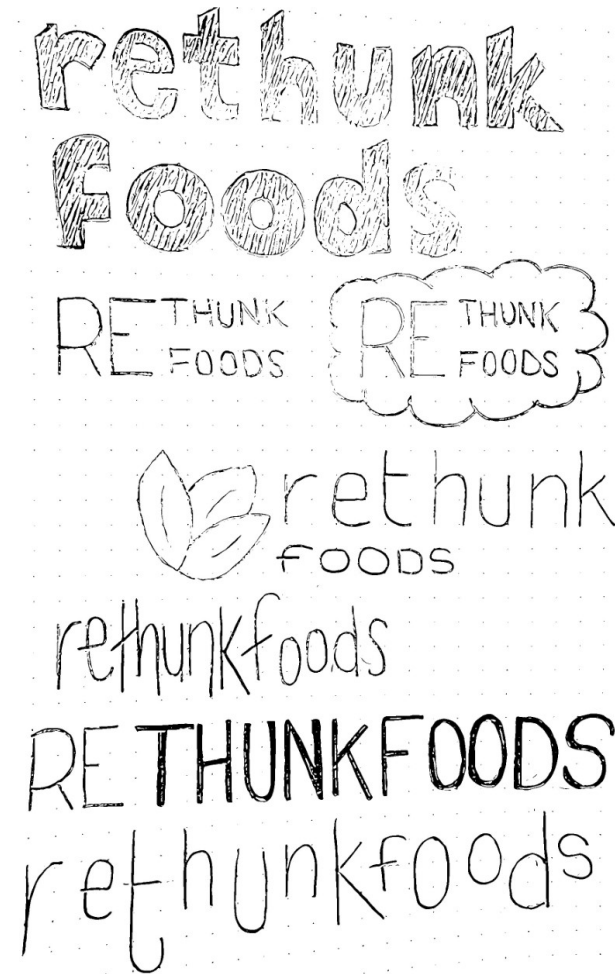 rethunk
foods
RE THUNK
FOODS
RE THUNK
FOODS
rethunk
FOODS
rethunkfoods
RETHUNKFOODS
rethunkfoods